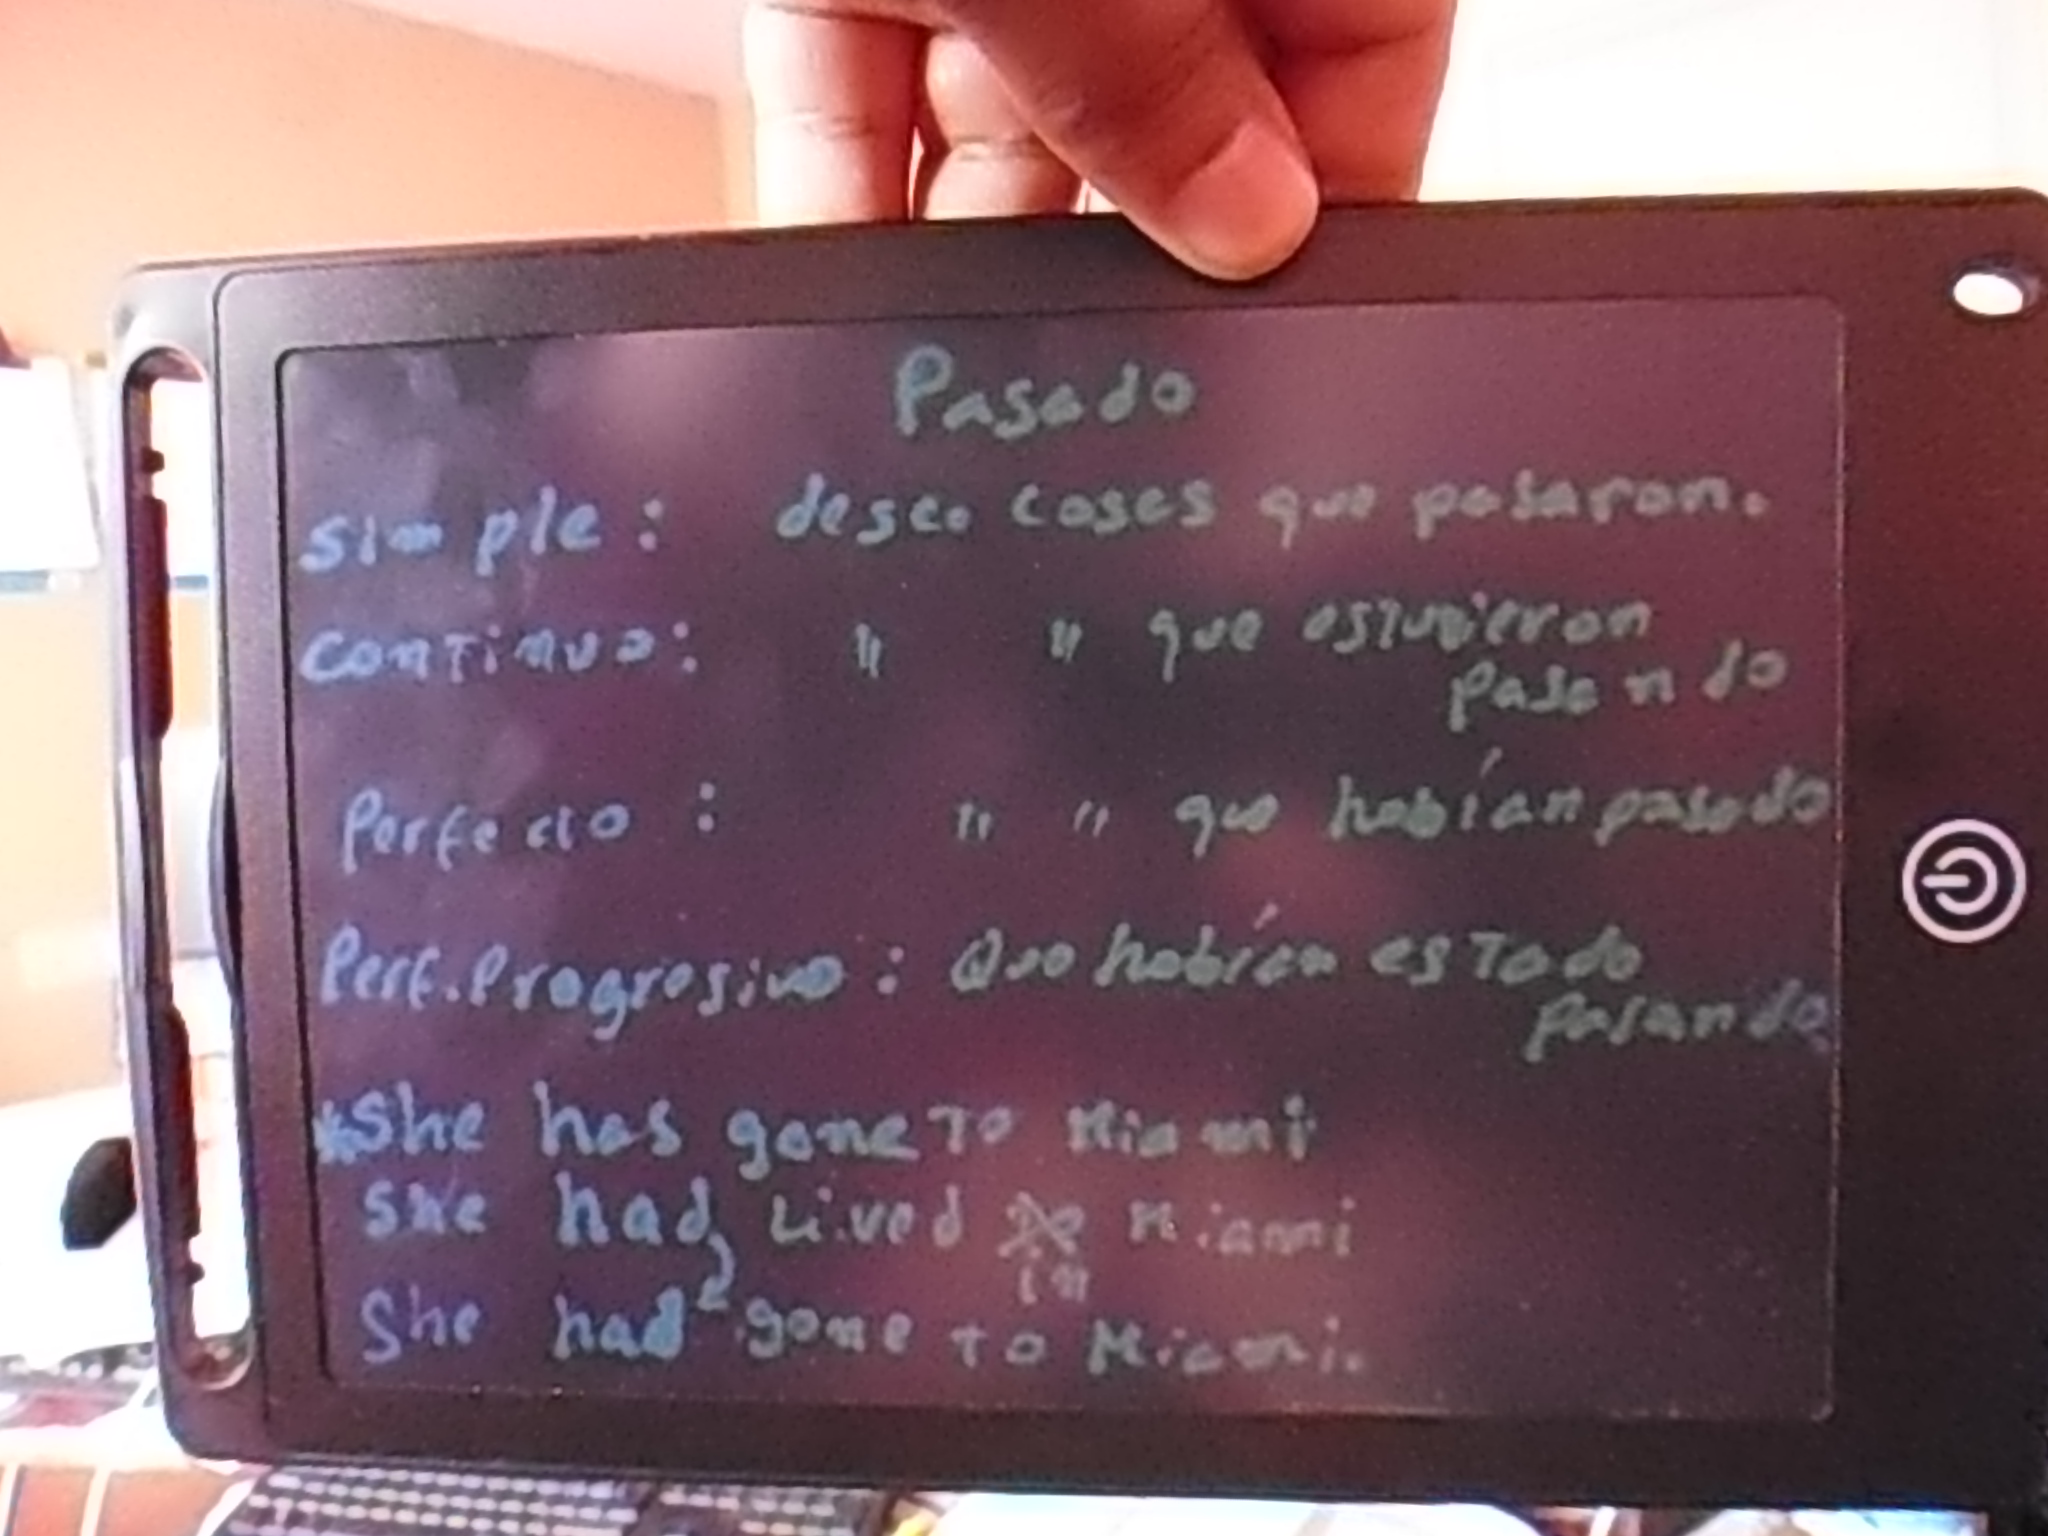 Pasado
simple: desc. cosas que pasaron.
continuo: " " que estuvieron
pasando
Perfecto : " " que habían pasado
Perf. Progresivo : Que habían estado
pasando
*She has gone To Miami
She had Lived in Miami
She had gone to Miami.